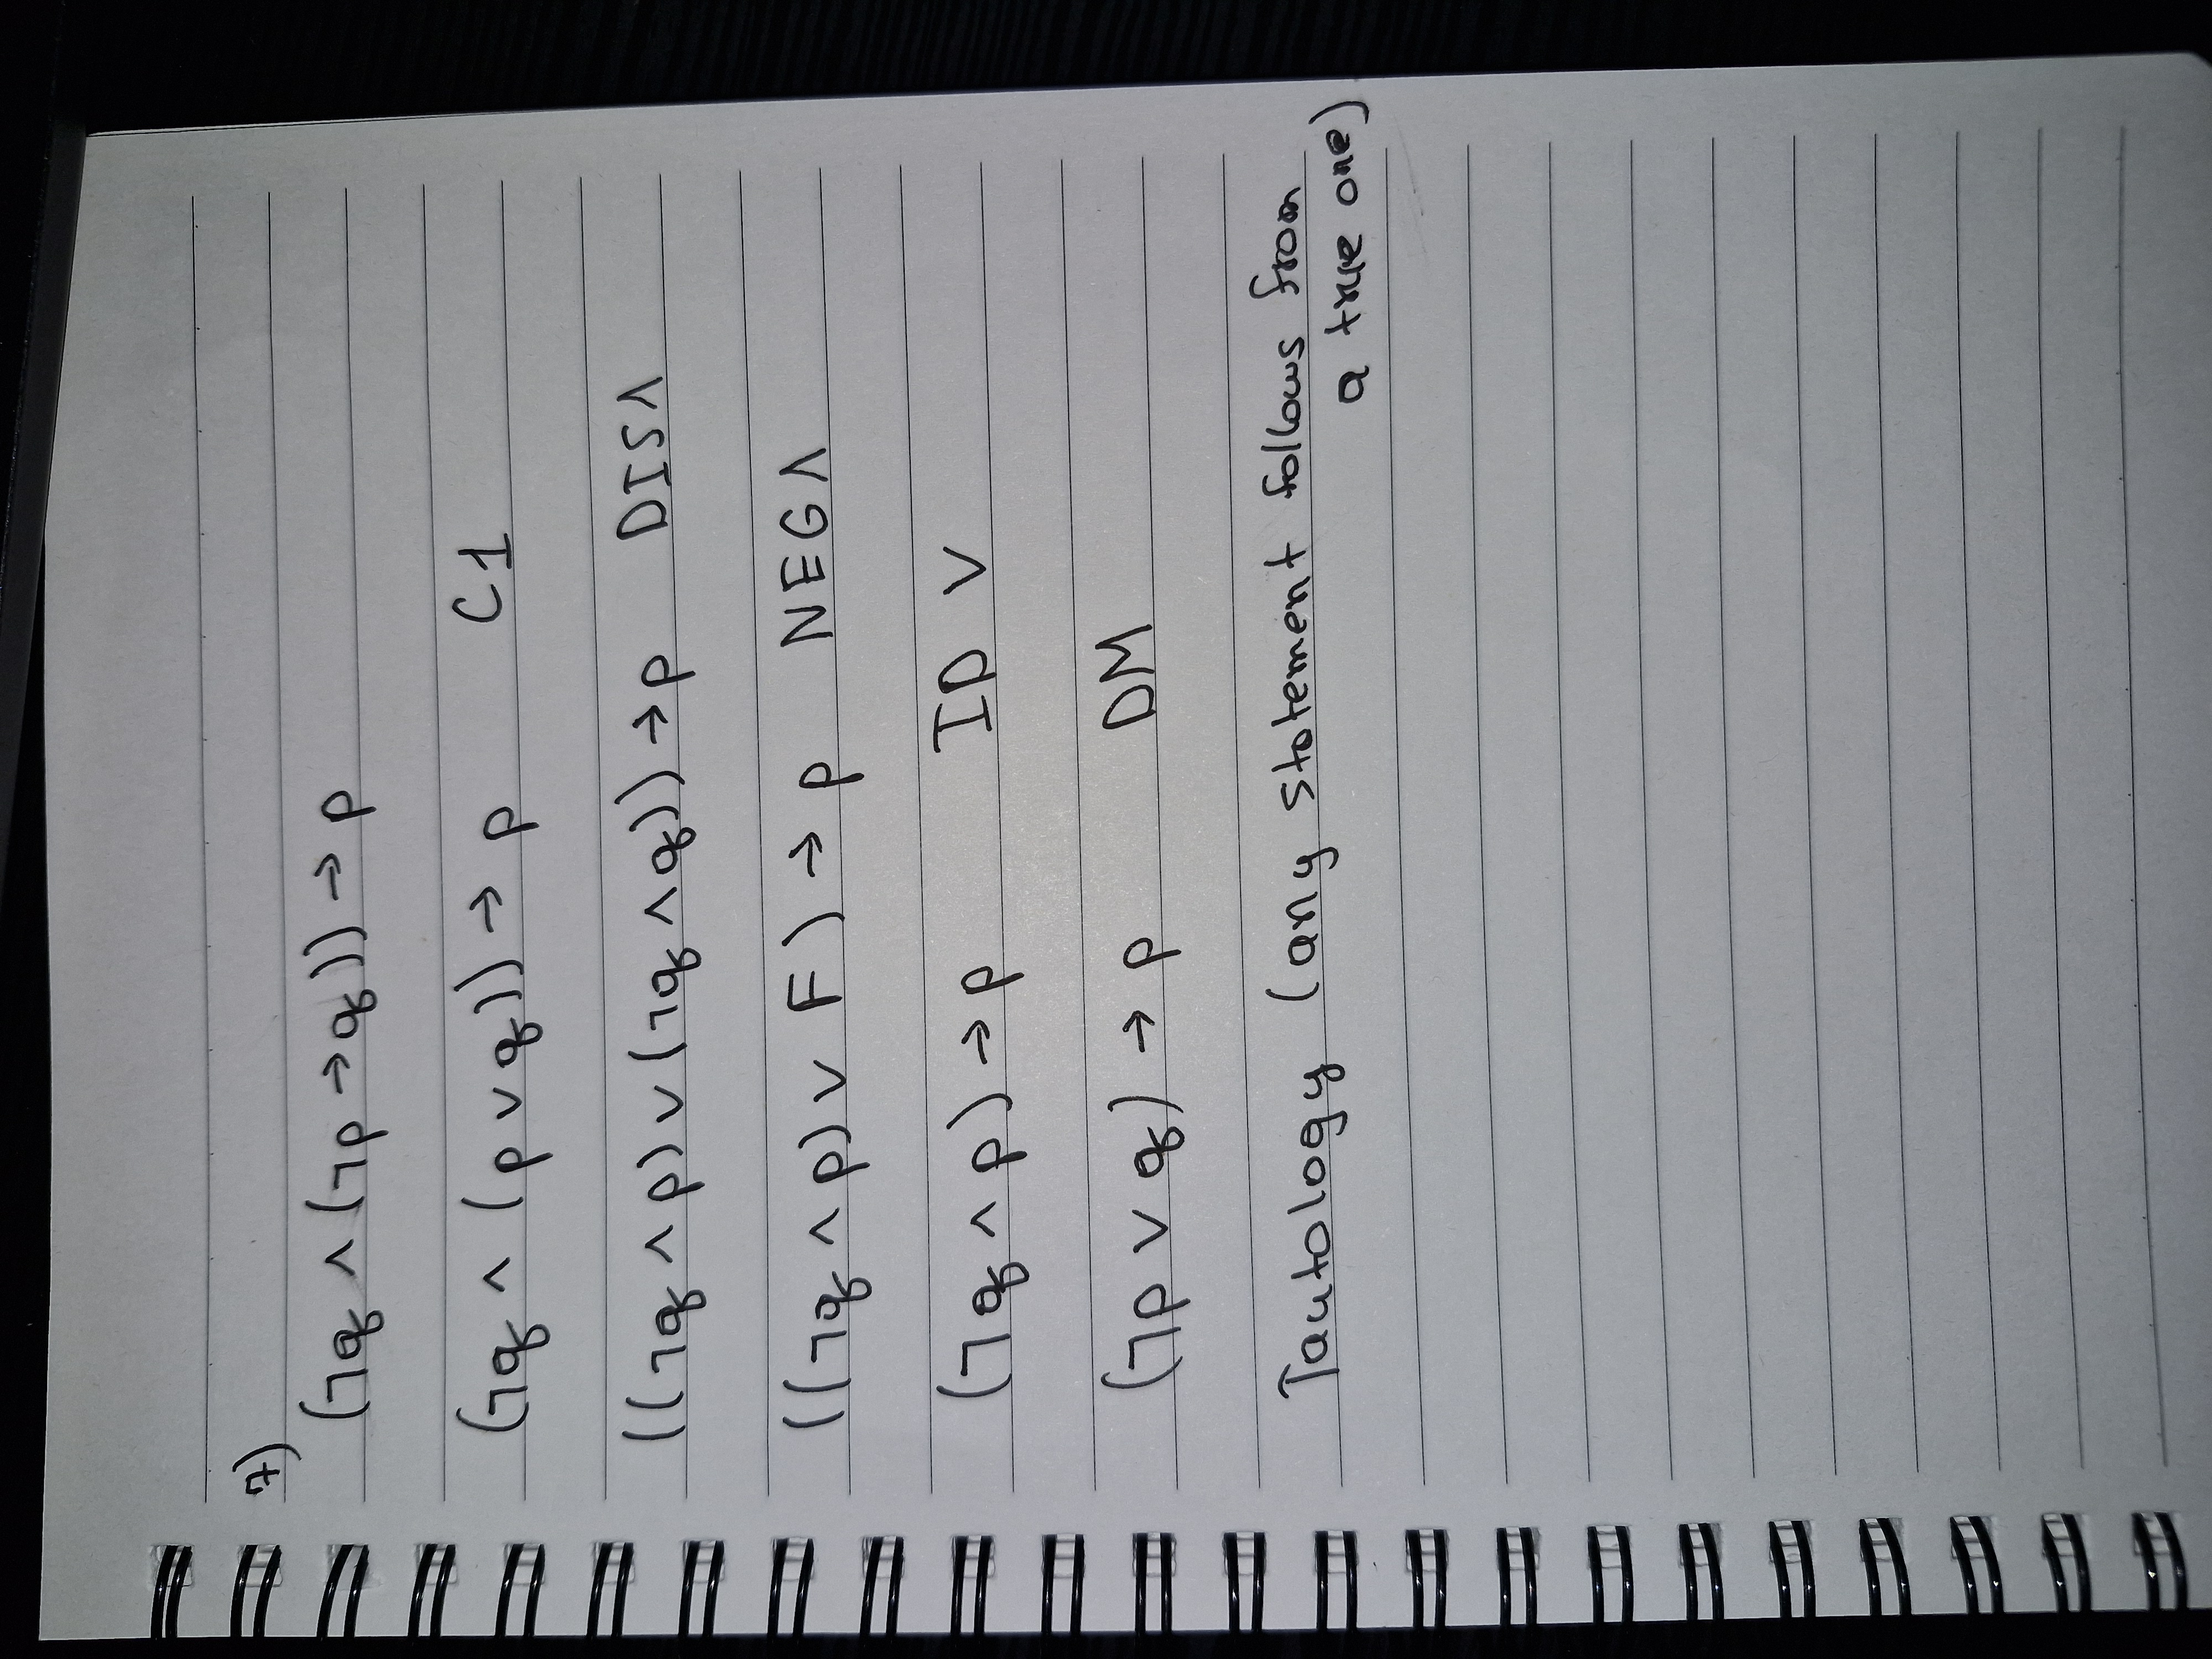 7)
(¬q ∧ (¬p → q)) → p
(¬q ∧ (p ∨ q)) → p C1
((¬q ∧ p) ∨ (¬q ∧ q)) → p DIS∧
((¬q ∧ p) ∨ F) → p NEG∧
(¬q ∧ p) → p ID ∨
(¬p ∨ q) → p DM
Tautology (any statement follows from
a true one)